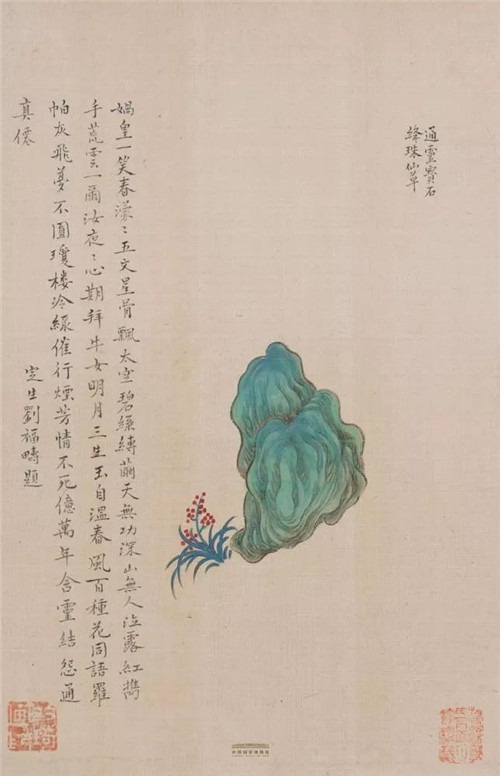 通靈寳石
絳珠仙草
媧皇一笑春濛〻五文星骨飄太空碧縧縛繭天無功深山無人泣露紅擕
手荒雲一爾汝夜〻心期拜牛女明月三生玉自溫春風百種花同語羅
帕灰飛夢不圓瓊樓冷綠催行煙芳情不死億萬年含靈結怨通
真僊
定生劉福疇題